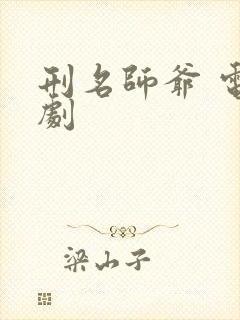 刑名師爺 電
劇
梁山子